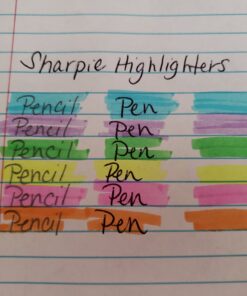 Sharpie Highlighters
Pencil Pen
Pencil Pen
Pencil Pen
Pencil Pen
Pencil Pen
Pencil Pen